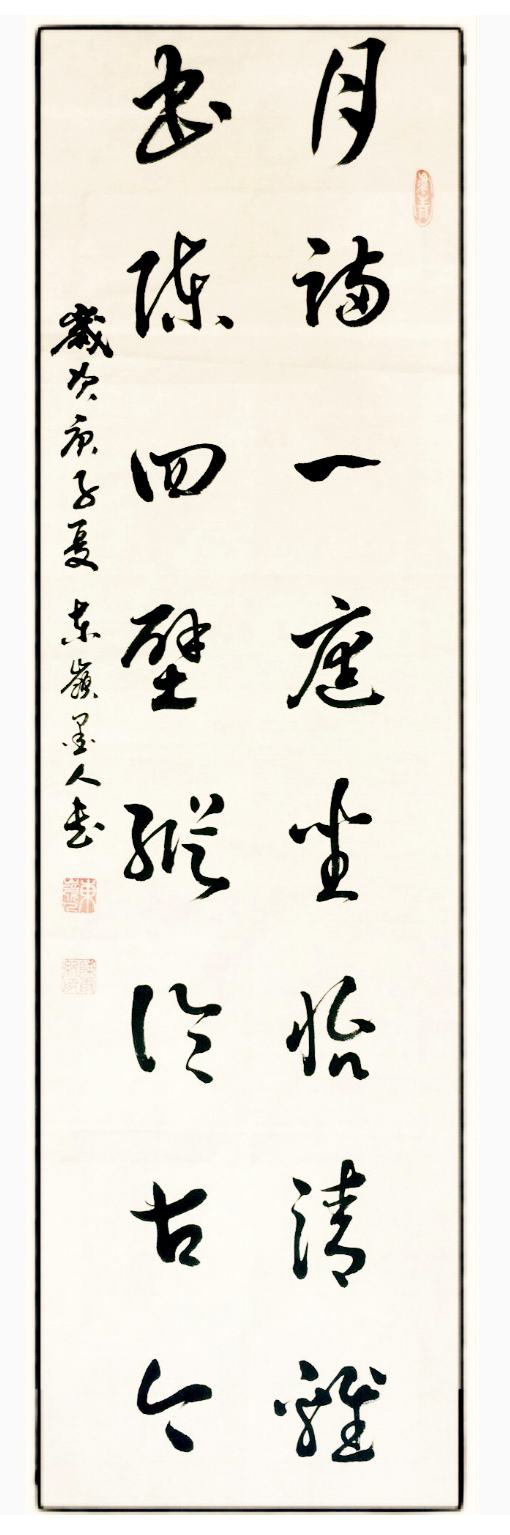 月滿一庭坐怡清
書陳四壁縱論古今
歲次庚子夏 東嶺墨人書